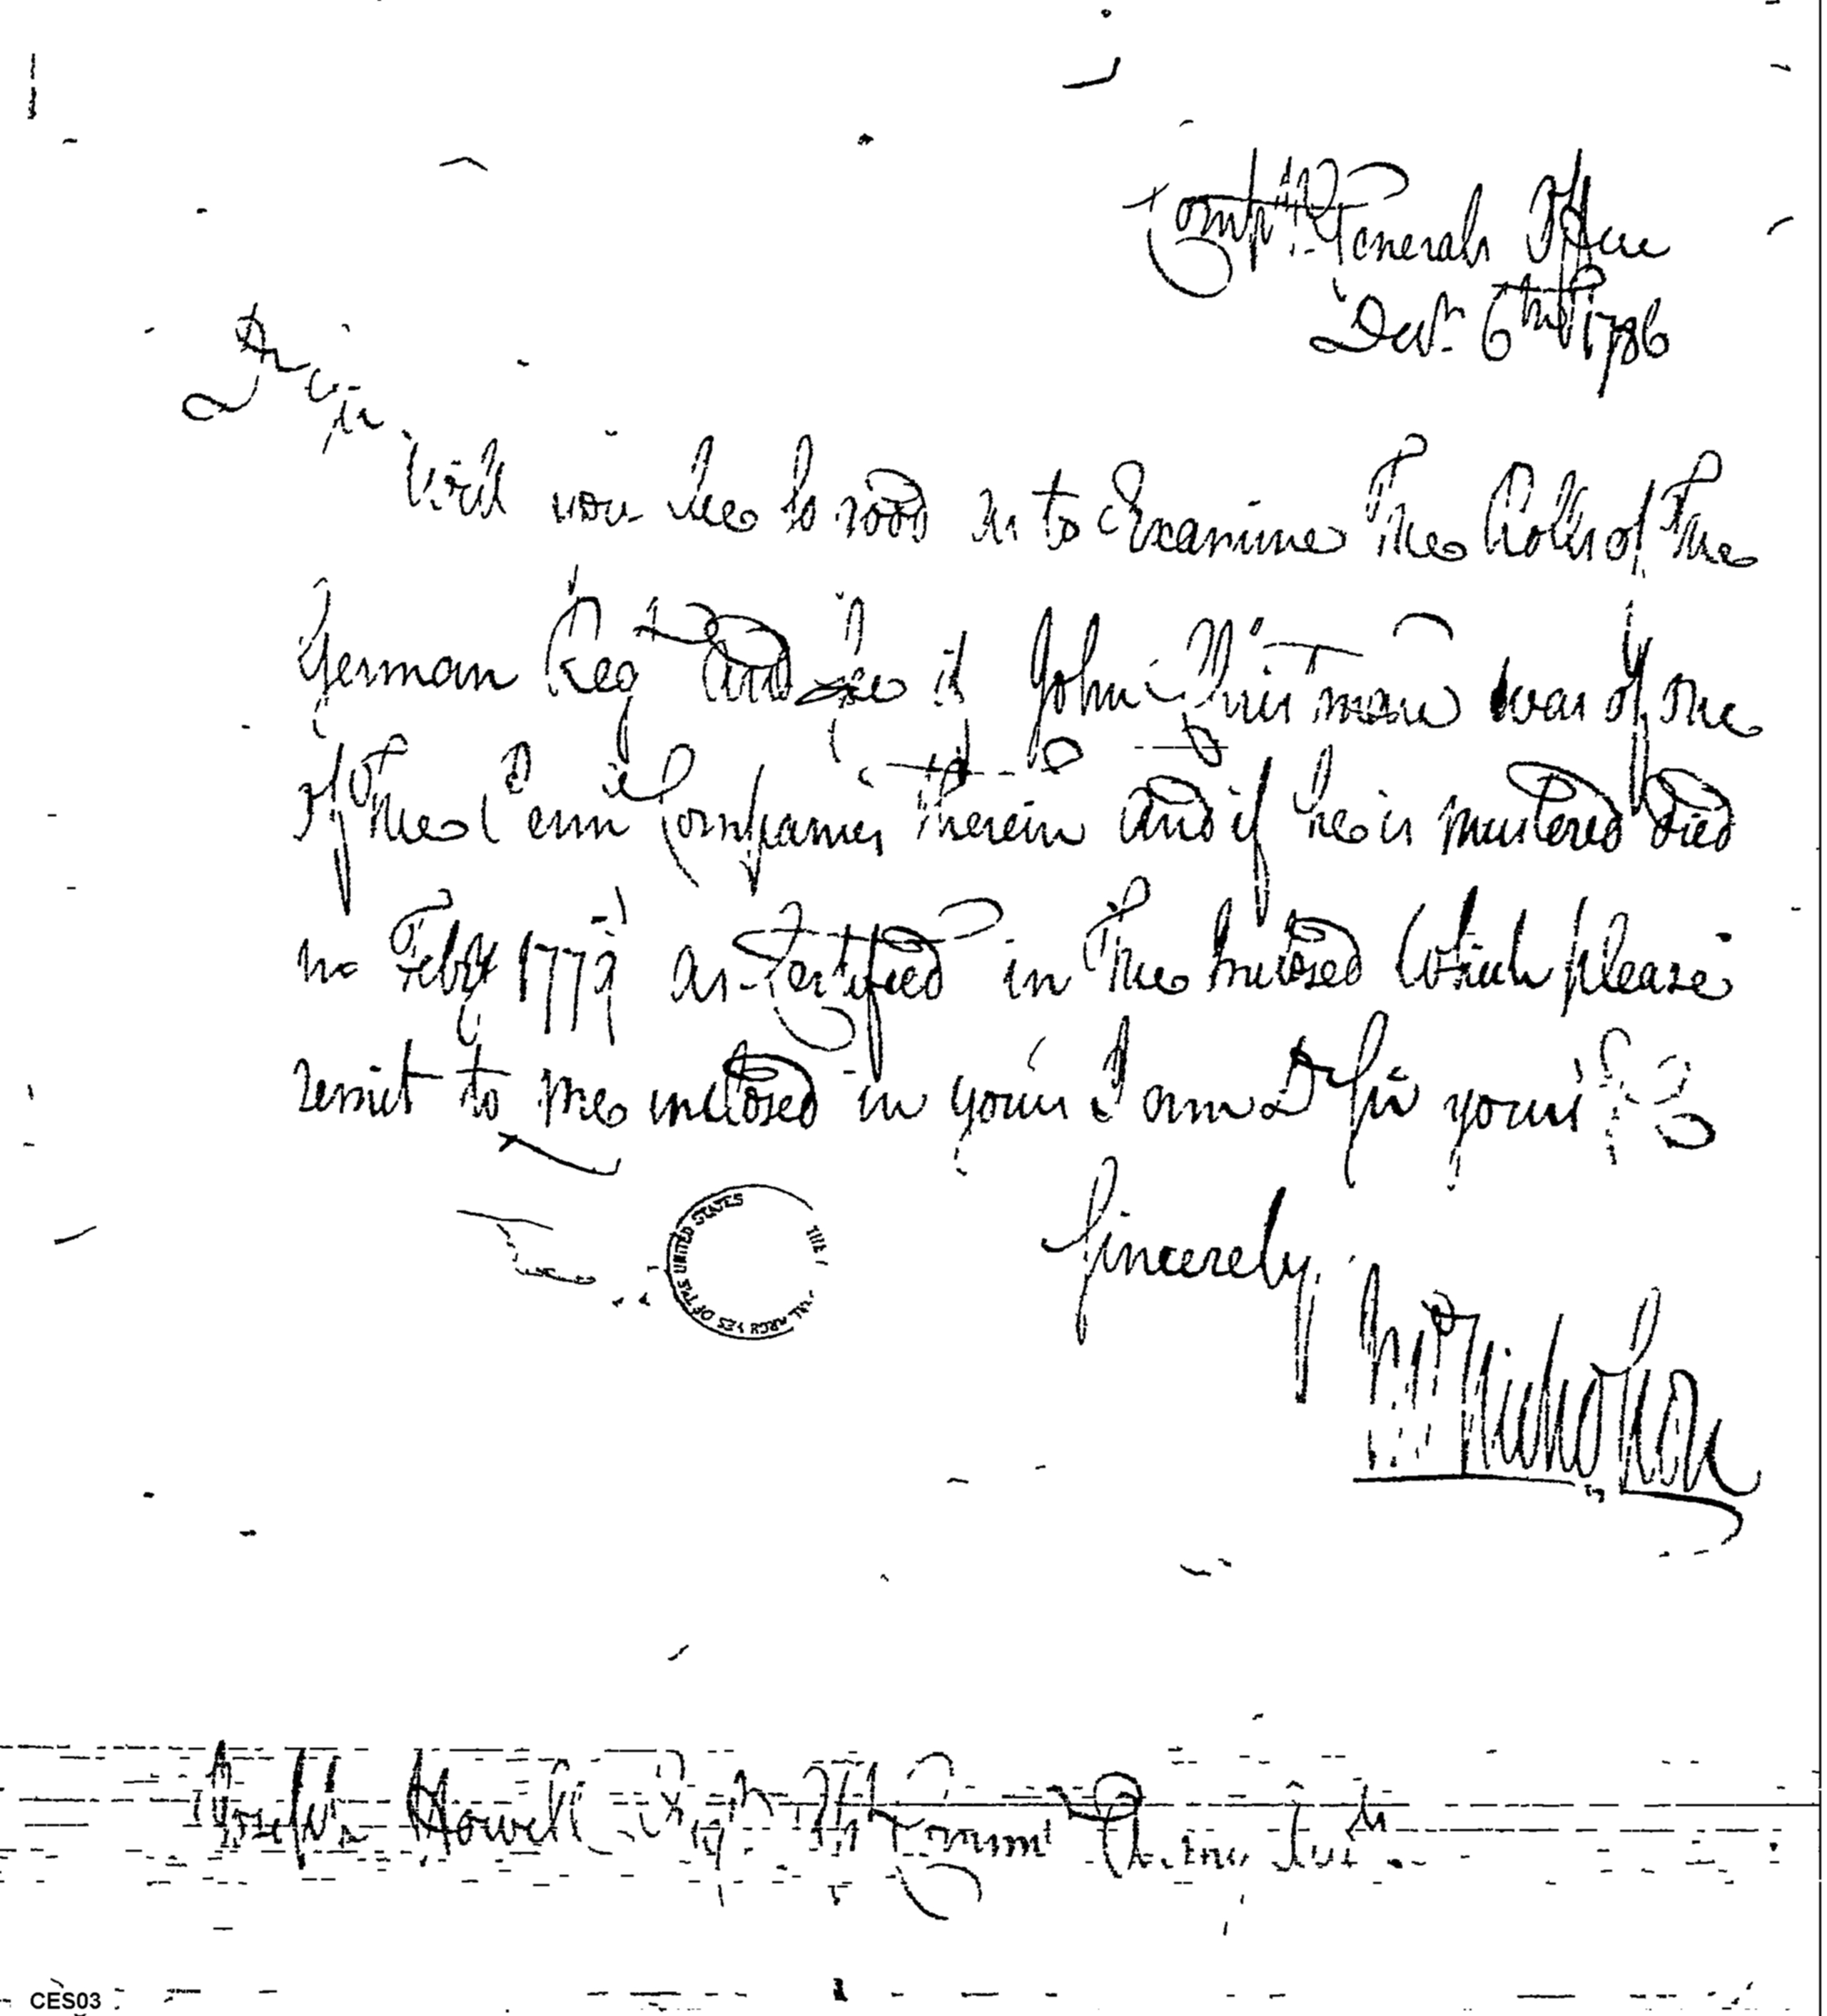 Compt. Generals Office
Decr. 6th 1786
Dr Sir
Will you be so good as to Examine The Rolls of The
German Regt. and see if John was of one
of The Penn Companies therein and if he is mustered died
in Feby 1779 as Certified in The inclosed Which please
remit to me inclosed in yours I am Dr Sir yours
Sincerely
Nicholson
THE ARCHIVES OF THE UNITED STATES
Joseph Howell Comm
CES03